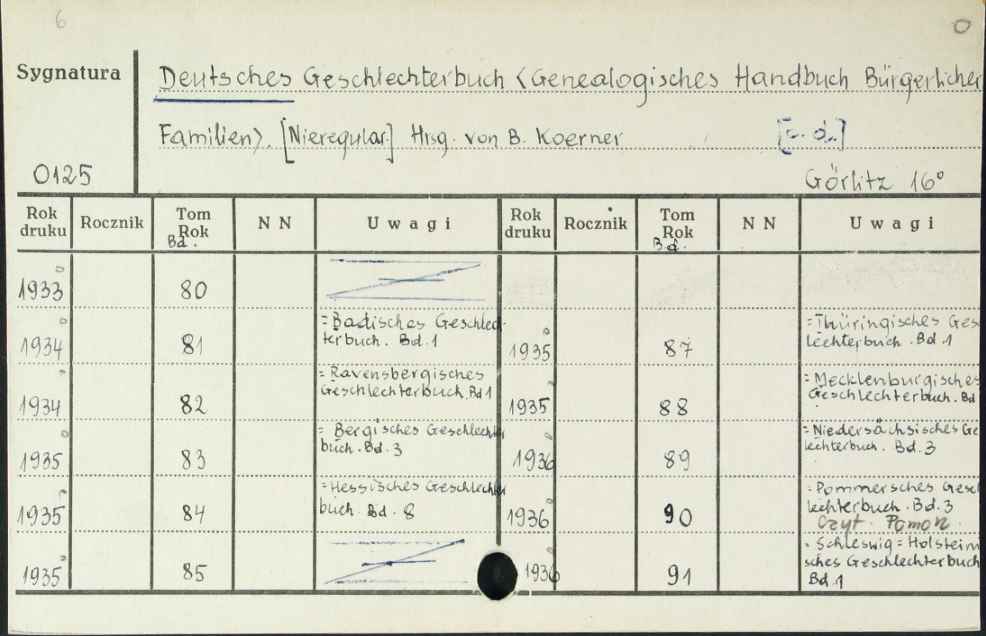 6
0
Sygnatura
Deutsches Geschlechterbuch <Genealogisches Handbuch Bürgerlicher
Familien>. [Nieregular.] Hrsg. von B. Koerner [c. d.]
0125
Görlitz 16°
Rok druku Rocznik Tom Rok Bd. NN Uwagi Rok druku Rocznik Tom Rok Bd. NN Uwagi
1933 80
1934 81 = Badisches Geschlech-
terbuch. Bd. 1
1935 87 = Thüringisches Ges
lechterbuch. Bd. 1
1934 82 = Ravensbergisches
Geschlechterbuch. Bd 1
1935 88 = Mecklenburgisches
Geschlechterbuch. Bd
1935 83 = Bergisches Geschlechter
buch. Bd. 3
1936 89 = Niedersächsisches Ge
lechterbuch. Bd. 3
1935 84 = Hessisches Geschlechter
buch. Bd. 8
1936 90 = Pommersches Gesc
lechterbuch. Bd. 3
Czyt. Pomorz.
1935 85
1936 91 = Schleswig=Holstein
sches Geschlechterbuch
Bd. 1